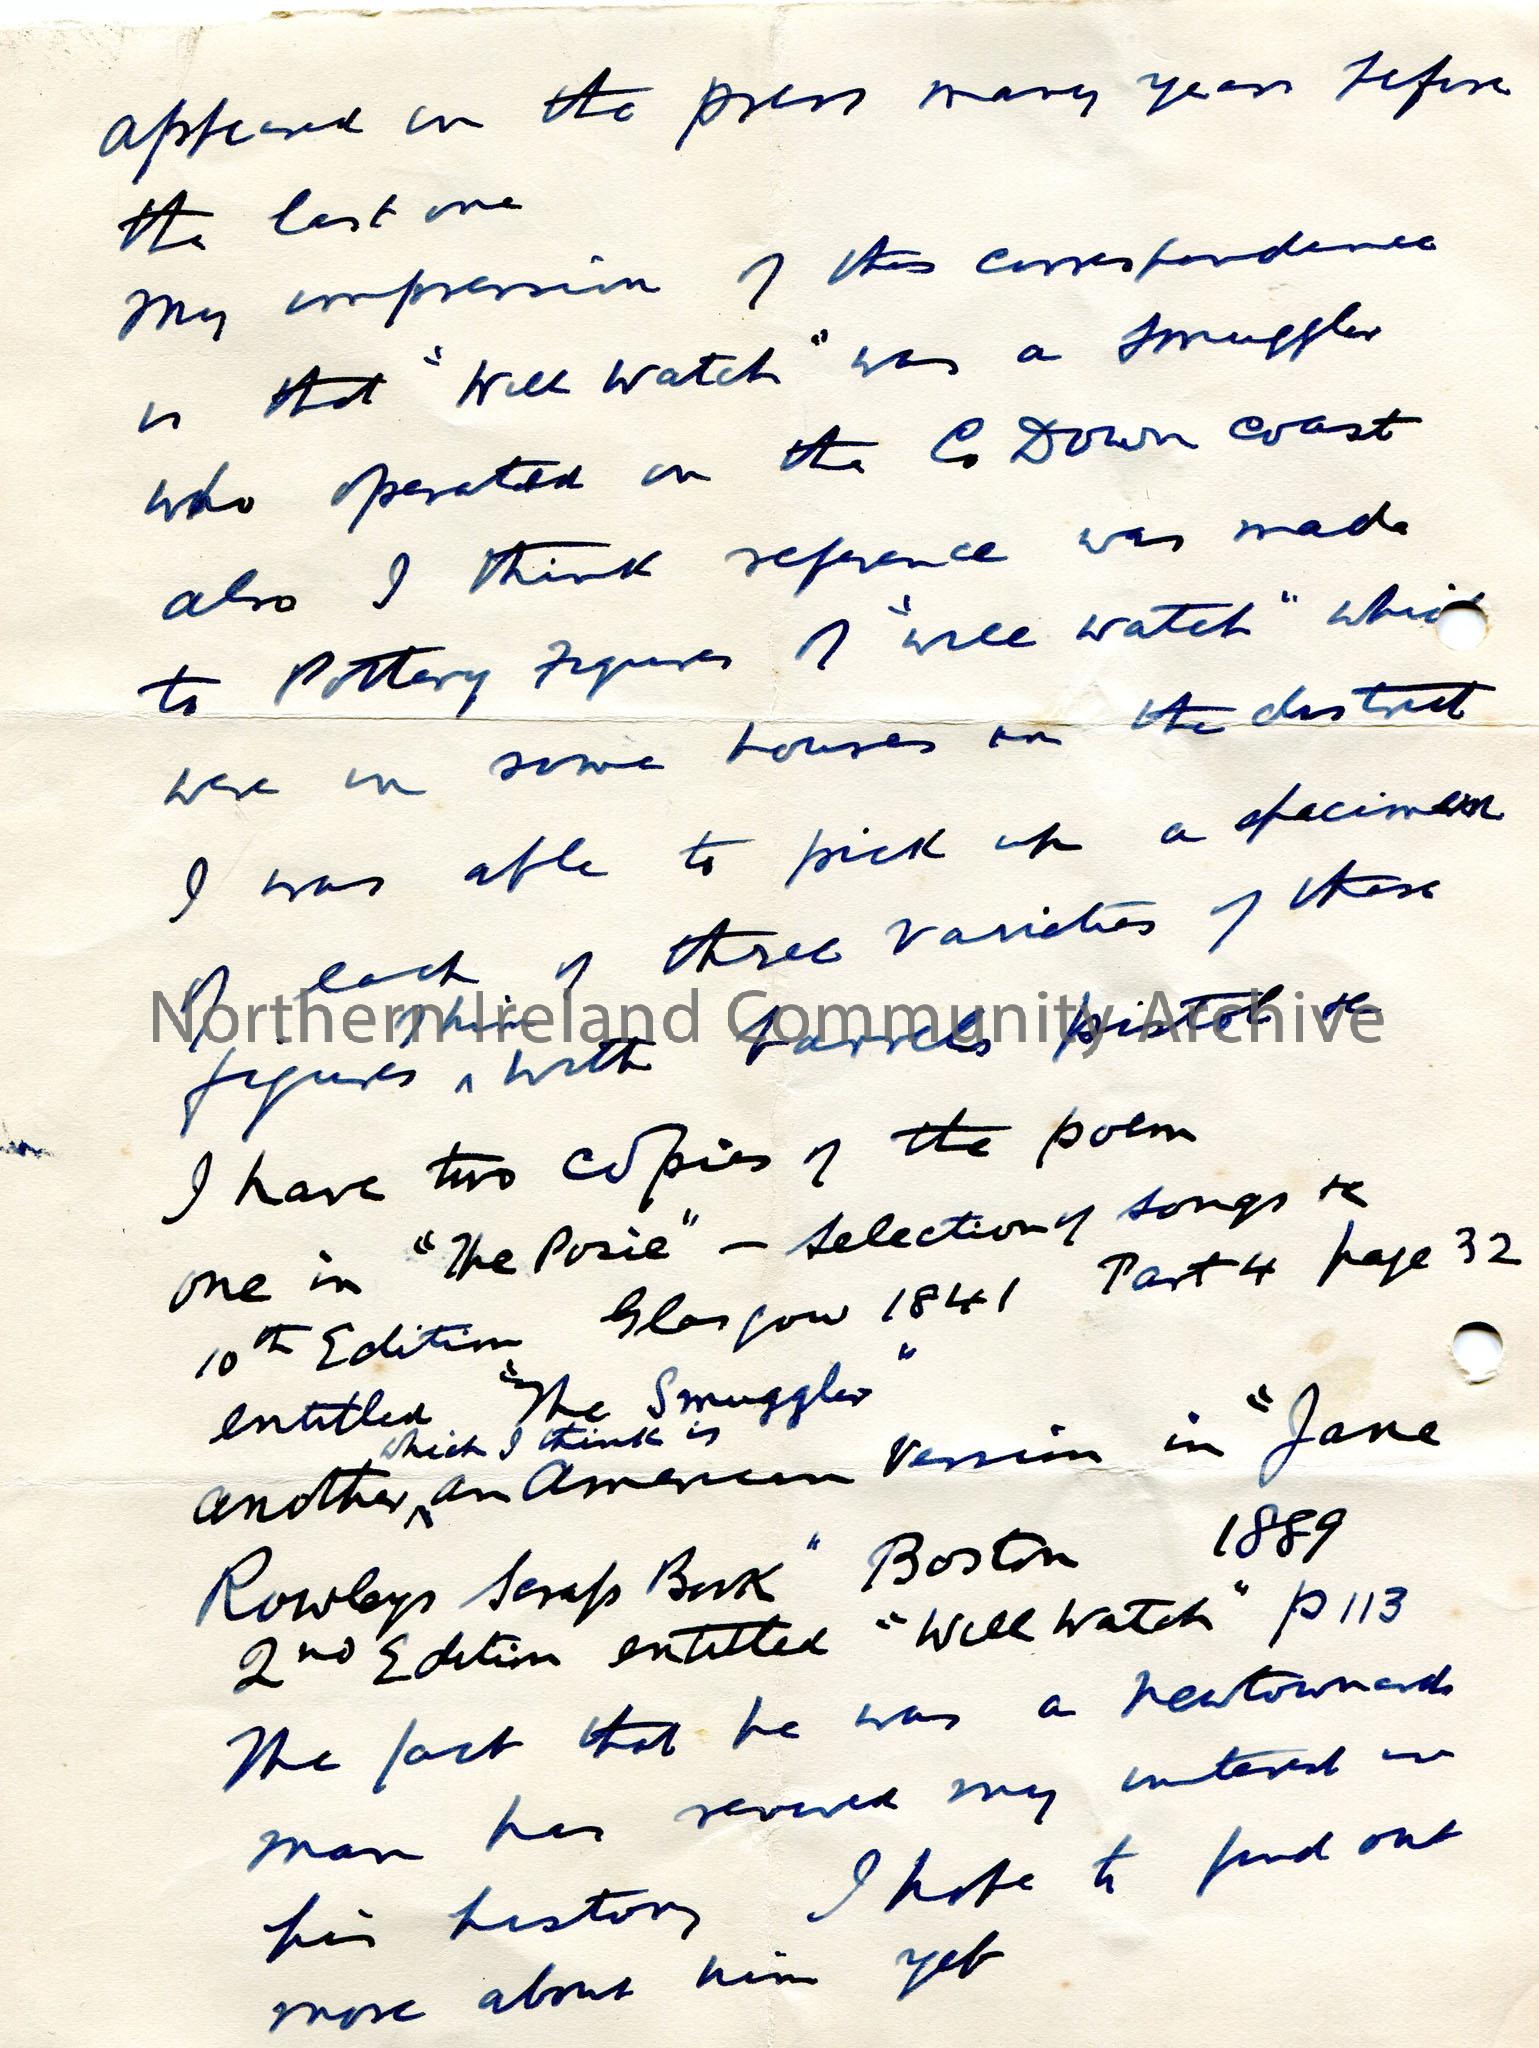 appeared in the press many years before
the last one
My impression of this correspondence
is that "Will Watch" was a smuggler
who operated on the Co Down coast
also I think reference was made
to Pottery Figures of "Will Watch" which
were in some houses in the district
I was able to pick up a specimen
of each of three varieties of these
figures ^ of him with barrels pistols &c
Northern Ireland Community Archive
I have two copies of the poem
one in "The Posie" – selection of songs &c
10th Edition Glasgow 1841 Part 4 page 32
entitled "The Smuggler"
another ^ which I think is an American version in "Jane
Rowleys Scrap Book" Boston 1889
2nd Edition entitled "Will Watch" p 113
The fact that he was a Newtownards
man has revived my interest in
his history I hope to find out
more about him yet